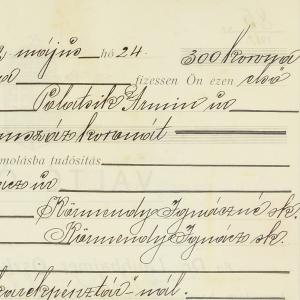 május hó 24. 300 korona
fizessen Ön ezen első
Polatsik Ármin úr
száz koronát
molásba tudósítás
úr
Körmendy Ignáczné sk.
Körmendy Ignácz sk.
nál.